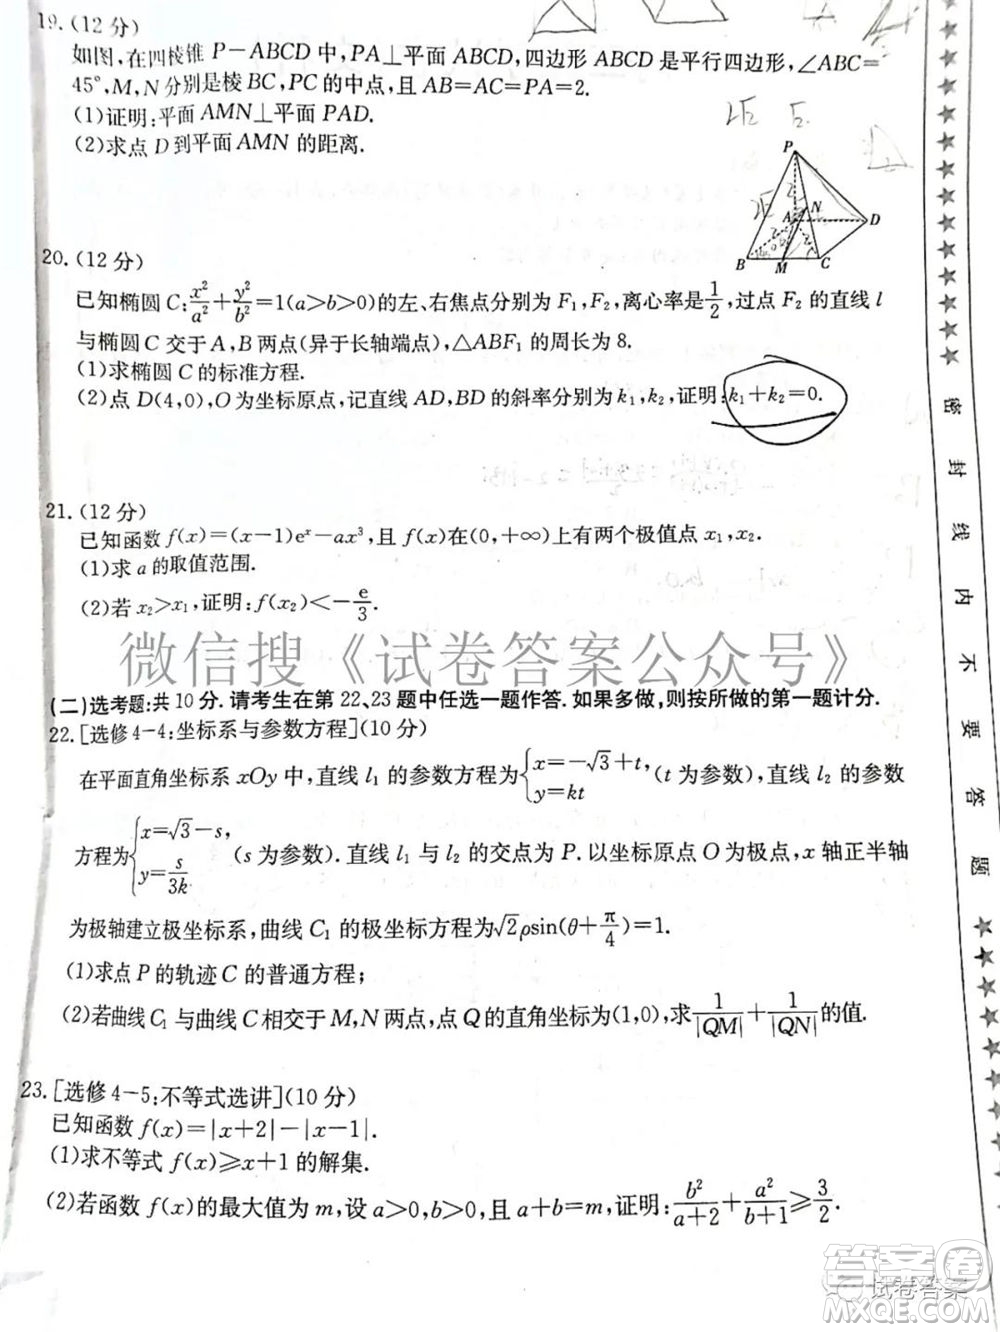 19.(12分)
如图,在四棱锥 P-ABCD 中,PA⊥平面 ABCD,四边形 ABCD 是平行四边形,∠ABC=
45°,M,N 分别是棱 BC,PC 的中点,且 AB=AC=PA=2.
(1)证明:平面 AMN⊥平面 PAD.
(2)求点 D 到平面 AMN 的距离.
P
N
A
D
B
M
C
20.(12分)
已知椭圆 C:x²/a²+y²/b²=1(a>b>0)的左、右焦点分别为 F₁,F₂,离心率是1/2,过点 F₂ 的直线 l
与椭圆 C 交于 A,B 两点(异于长轴端点),△ABF₁ 的周长为 8.
(1)求椭圆 C 的标准方程.
(2)点 D(4,0),O 为坐标原点,记直线 AD,BD 的斜率分别为 k₁,k₂,证明:k₁+k₂=0.
21.(12分)
已知函数 f(x)=(x-1)eˣ-ax³,且 f(x)在(0,+∞)上有两个极值点 x₁,x₂.
(1)求 a 的取值范围.
(2)若 x₂>x₁,证明:f(x₂)<-e/3.
微信搜《试卷答案公众号》
(二)选考题:共 10 分.请考生在第 22、23 题中任选一题作答.如果多做,则按所做的第一题计分.
22.[选修 4-4:坐标系与参数方程](10 分)
在平面直角坐标系 xOy 中,直线 l₁ 的参数方程为{x=-√3+t, y=kt (t 为参数),直线 l₂ 的参数
方程为{x=√3-s, y=s/3k (s 为参数).直线 l₁ 与 l₂ 的交点为 P.以坐标原点 O 为极点,x 轴正半轴
为极轴建立极坐标系,曲线 C₁ 的极坐标方程为√2ρsin(θ+π/4)=1.
(1)求点 P 的轨迹 C 的普通方程;
(2)若曲线 C₁ 与曲线 C 相交于 M,N 两点,点 Q 的直角坐标为(1,0),求1/|QM|+1/|QN|的值.
23.[选修 4-5:不等式选讲](10 分)
已知函数 f(x)=|x+2|-|x-1|.
(1)求不等式 f(x)≥x+1 的解集.
(2)若函数 f(x)的最大值为 m,设 a>0,b>0,且 a+b=m,证明:b²/(a+2)+a²/(b+1)≥3/2.
密封线内不要答题
答案卷
试卷答案
MXQE.COM